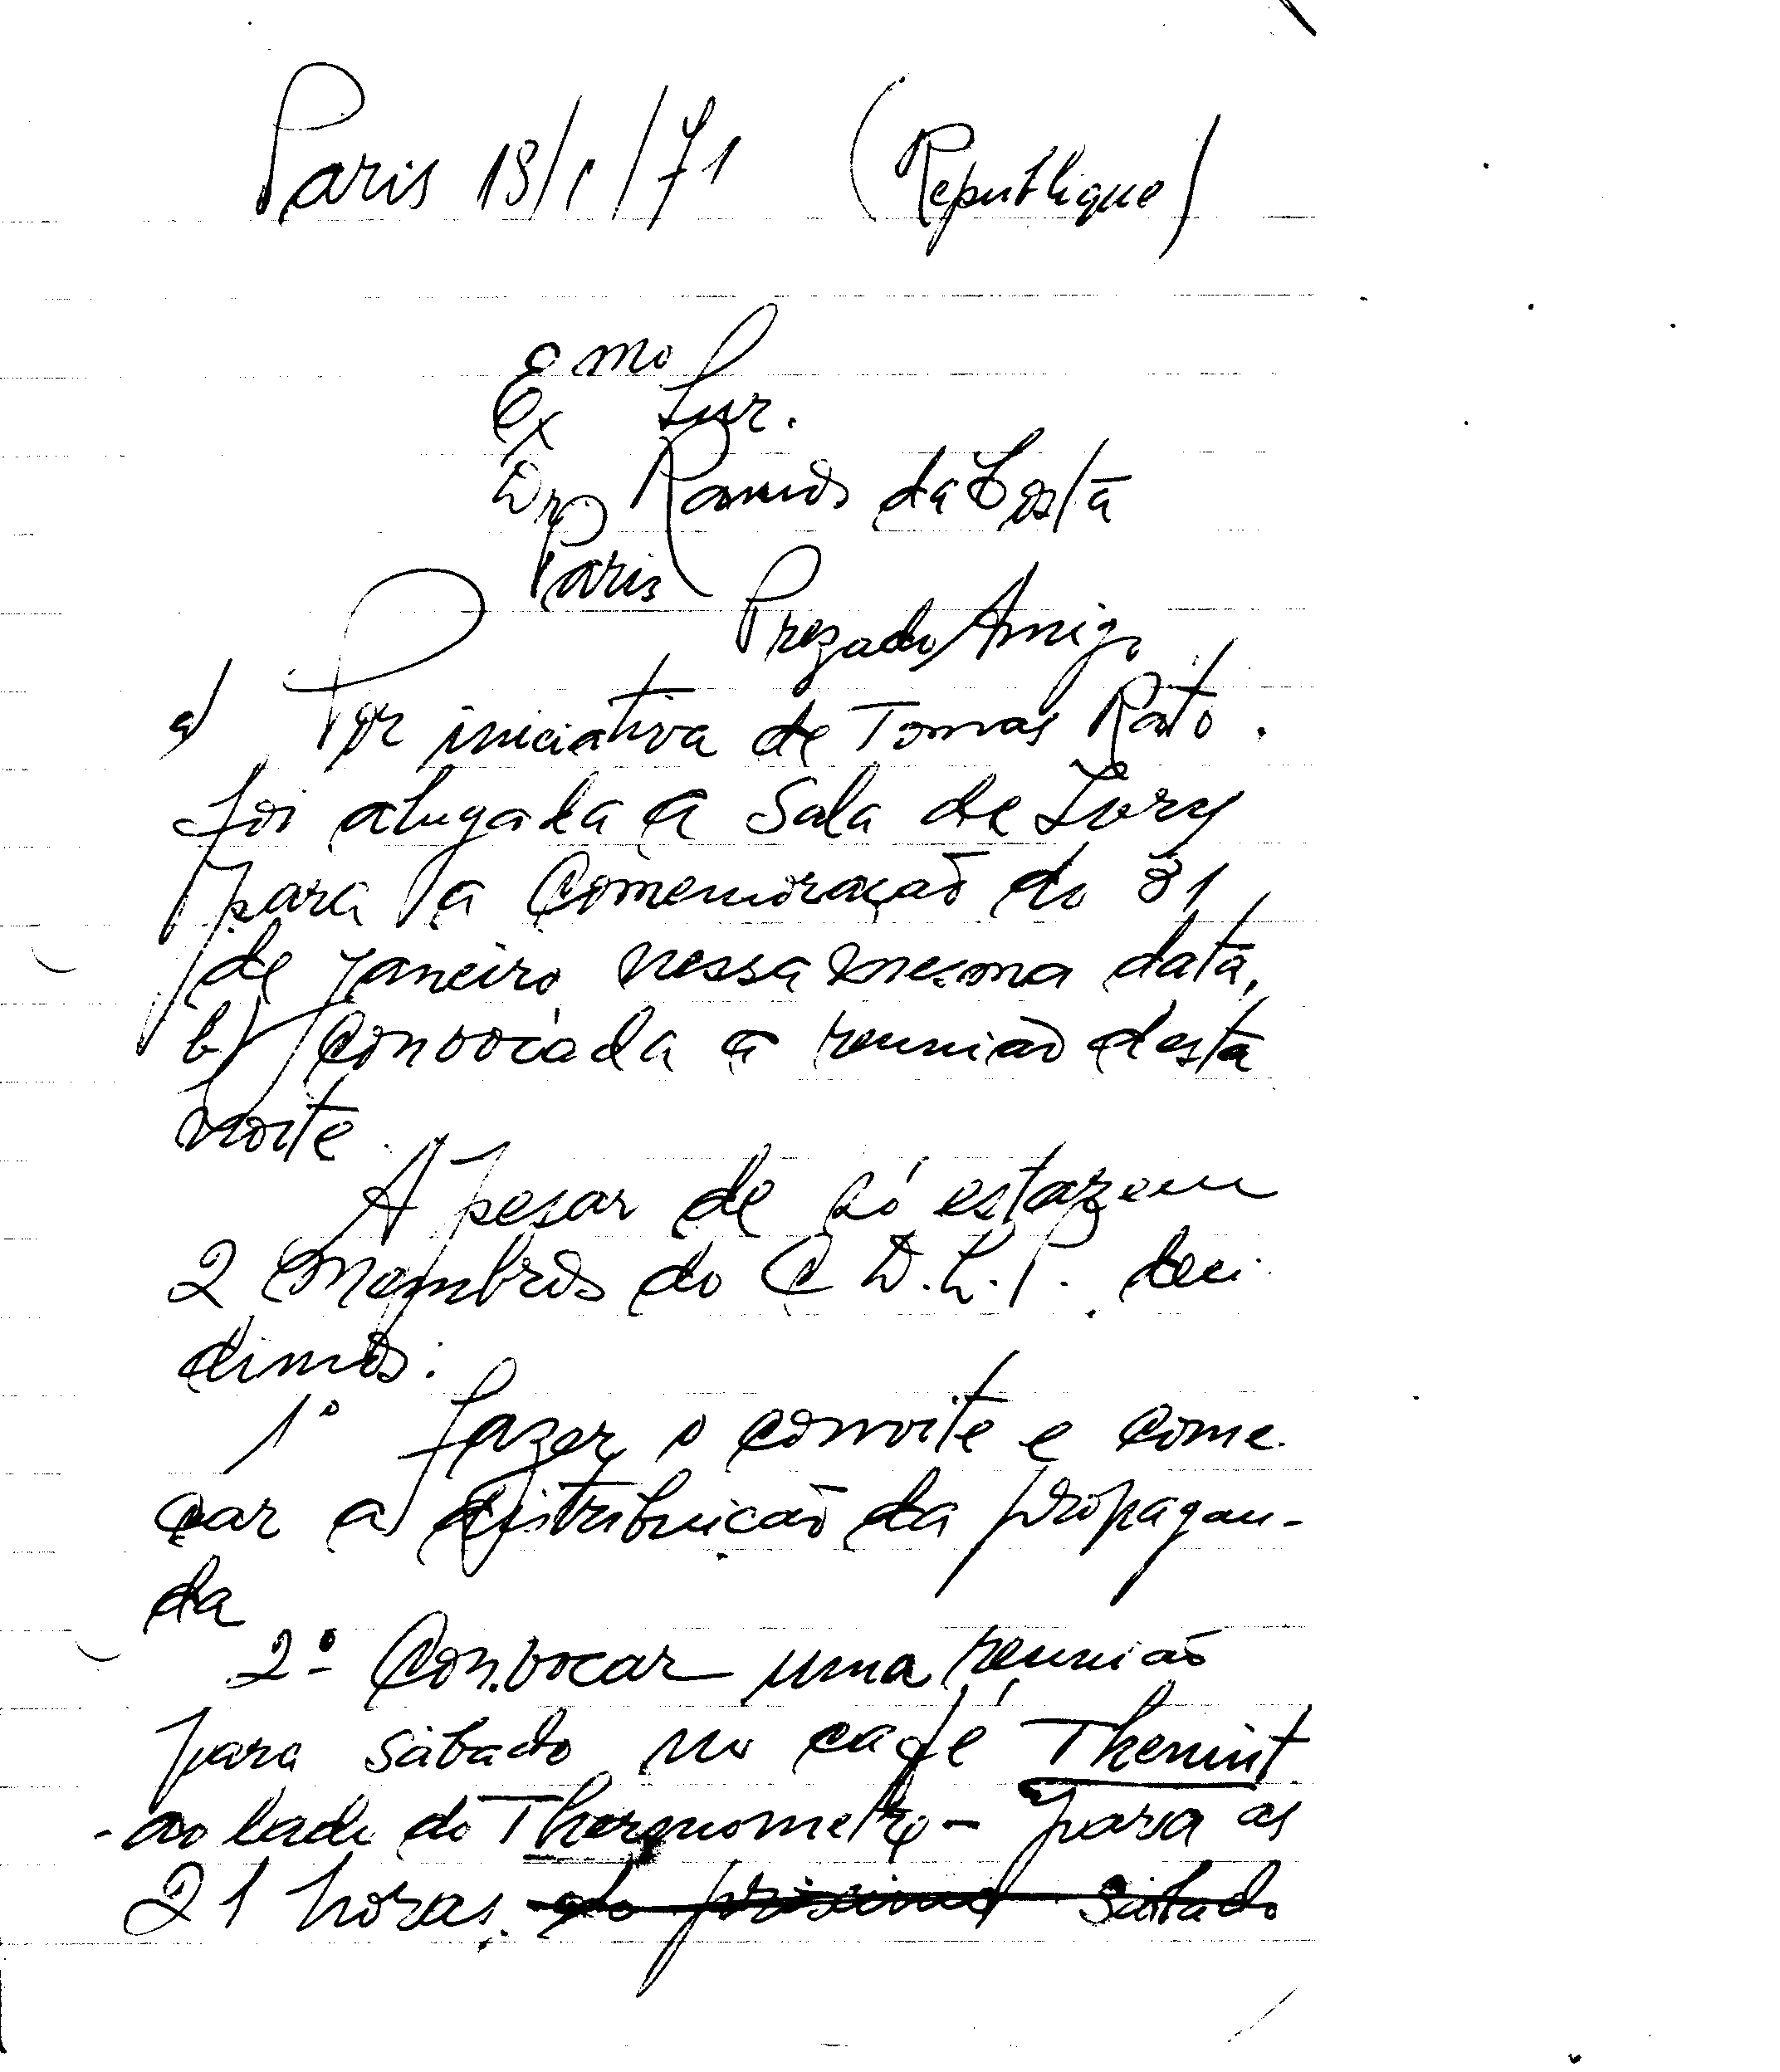 Paris 18/1/71 (Republique)
Exmo Snr.
Dr Ramos da Costa
Paris
Prezado Amigo
a) Por iniciativa de Tomas Rato.
foi alugada a Sala de Ivry
para a Comemoração do 31
de Janeiro nessa mesma data,
b) Convocada a reunião desta
noite.
Apesar de só estarem
2 membros do C D.L.P. deci
dimos:
1º fazer o convite e come
çar a distribuição da propagan-
da
2º Convocar uma reunião
para sábado no café
- ao lado do Thermometro - para as
21 horas. do próximo sábado